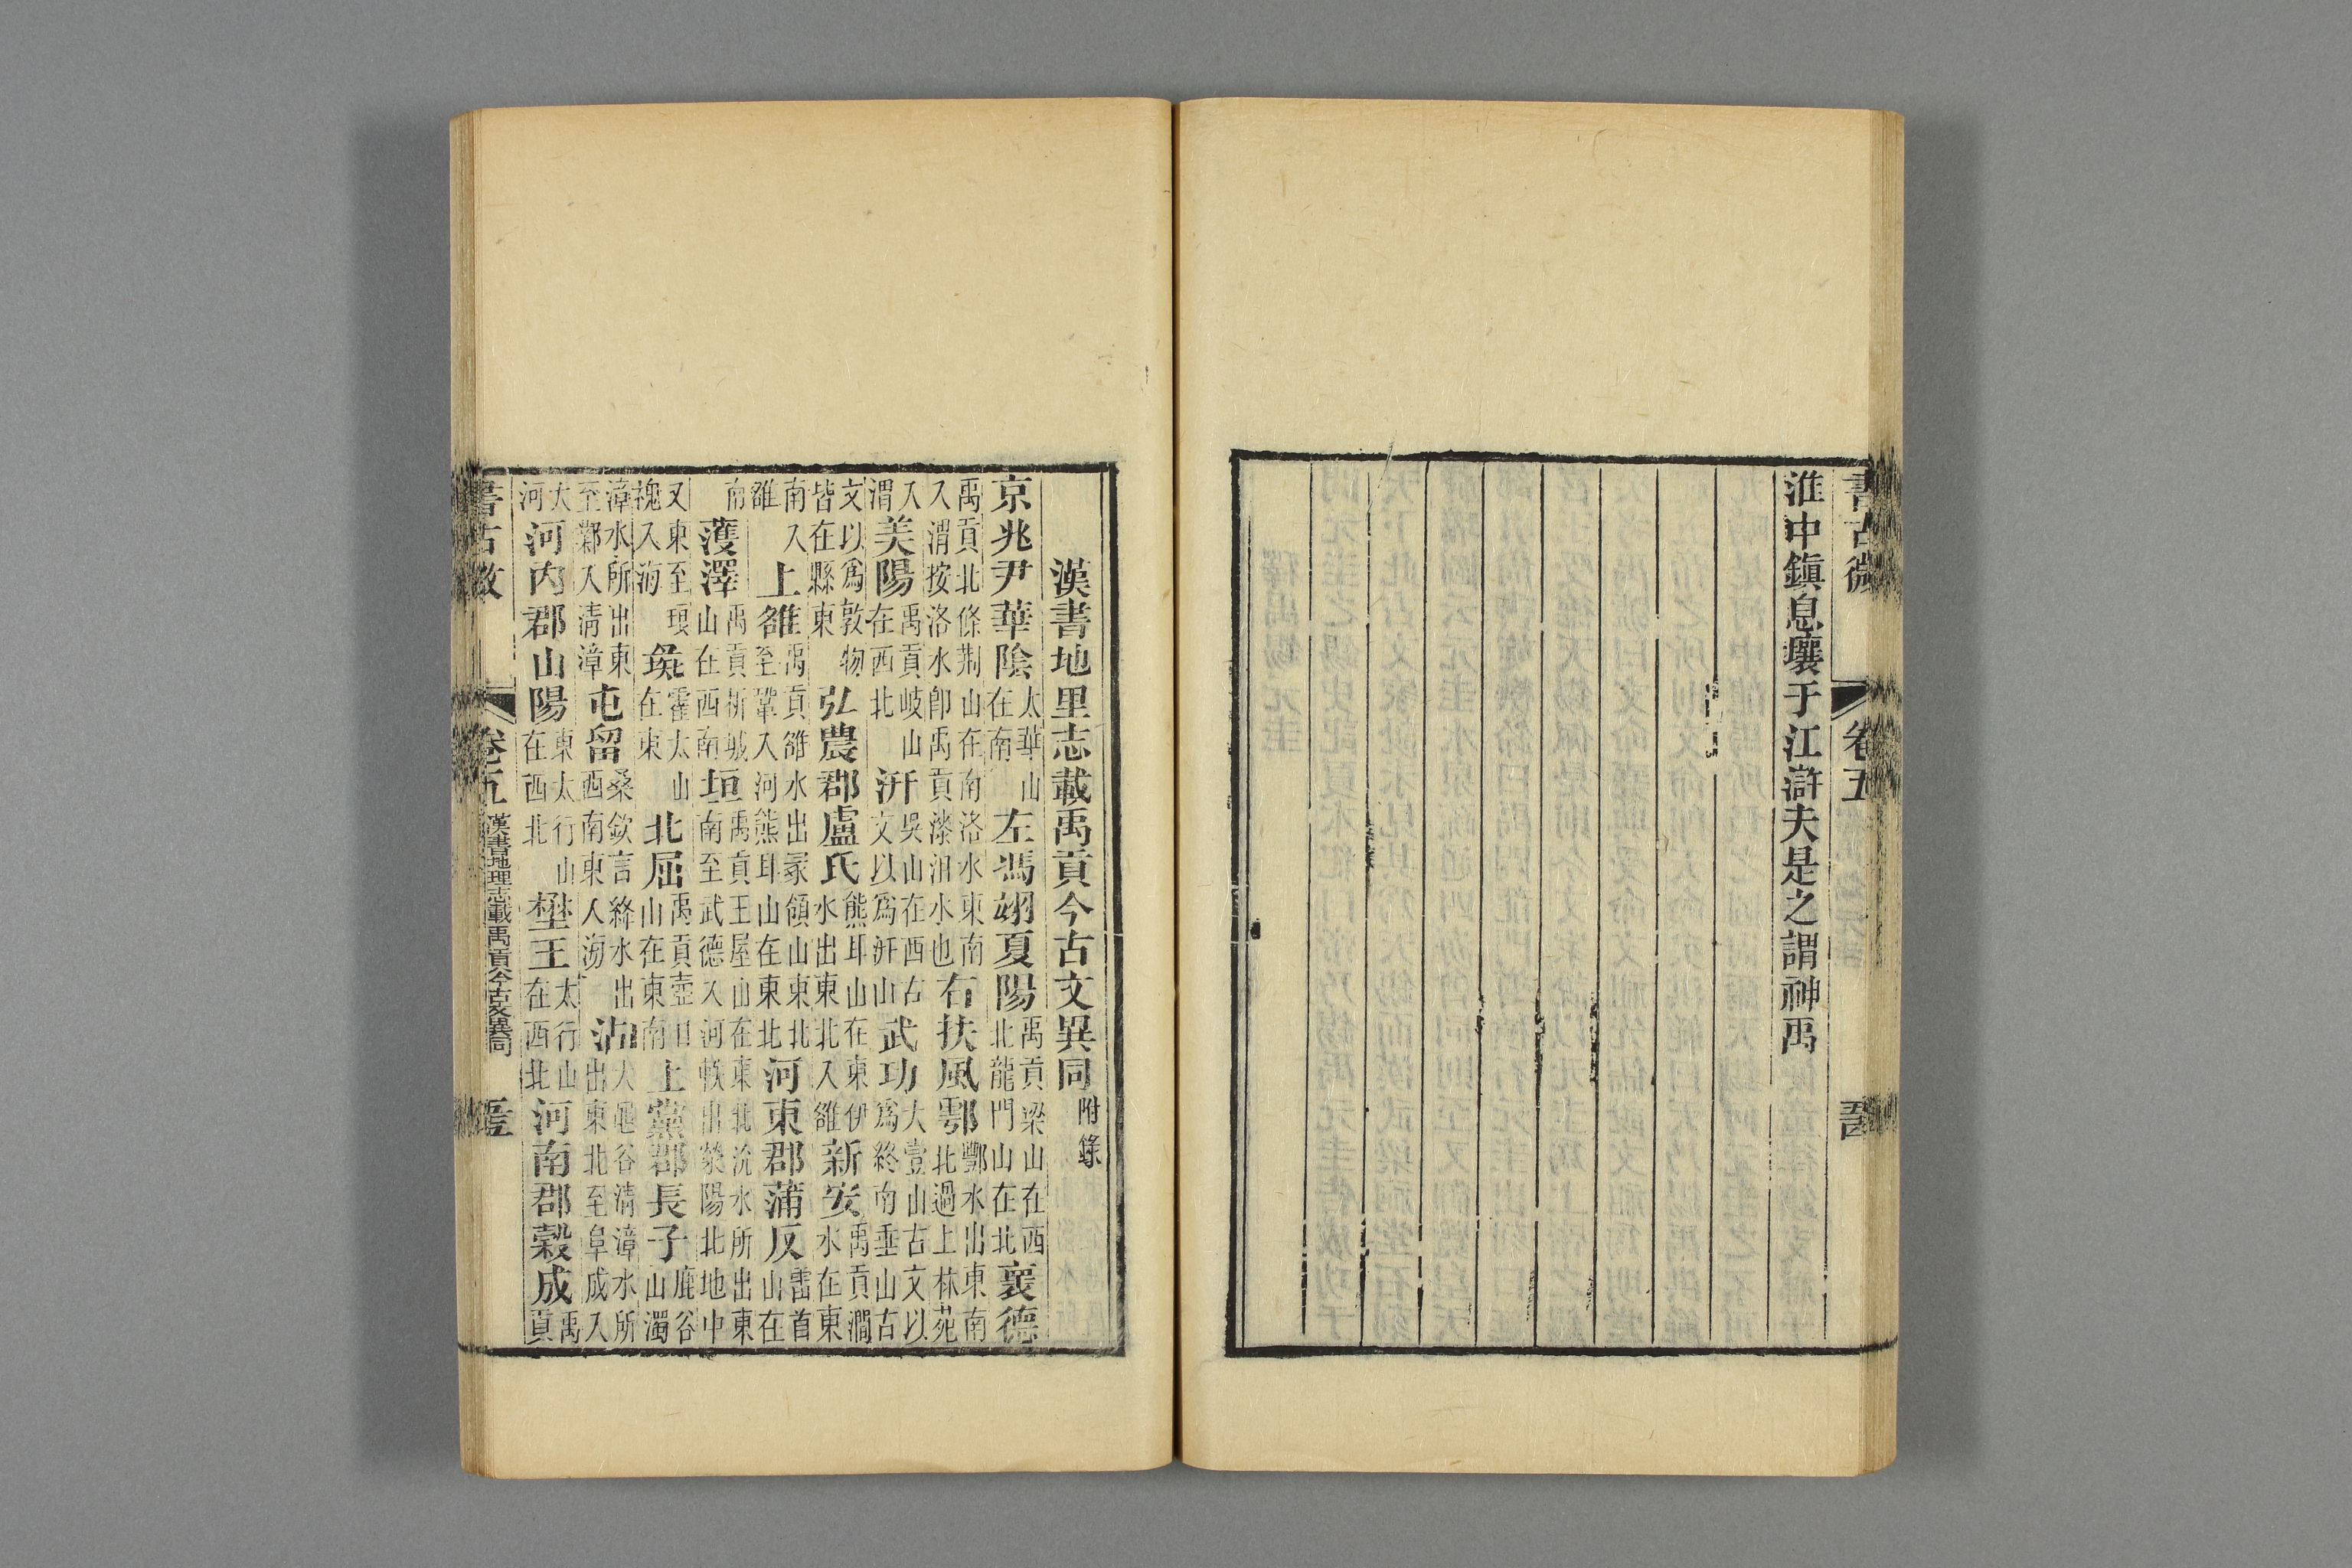 書古微 卷五 五十四
淮中鎭息壤于江滸夫是之謂神禹
漢書地里志載禹貢今古文異同附錄
京兆尹華陰太華山在南左馮翊夏陽禹貢梁山在西北龍門山在北襃德
禹貢北條荆山在南洛水東南入渭按洛水卽禹貢漆沮水也右扶風鄠酆水出東南北過上林苑
入渭美陽禹貢岐山在西北汧吳山在西古文以爲汧山武功大壹山古文以爲終南垂山古
文以爲敦物皆在縣東弘農郡盧氏熊耳山在東伊水出東北入雒新安禹貢澗水在東
南入雒上雒禹貢雒水出冢領山東北至鞏入河熊耳山在東北河東郡蒲反雷首山在
南濩澤禹貢析城山在西南垣禹貢王屋山在東北沇水所出東南至武德入河軼出滎陽北地中
又東至琅槐入海彘霍太山在東北屈禹貢壺口山在東南上黨郡長子鹿谷山濁
漳水所出東至鄴入清漳屯留桑欽言絳水出西南東入海沾大黽谷清漳水所出東北至阜成入
大河河內郡山陽東太行山在西北壄王太行山在西北河南郡穀成禹貢
書古微 卷五 漢書地理志載禹貢今古文異同 五十五